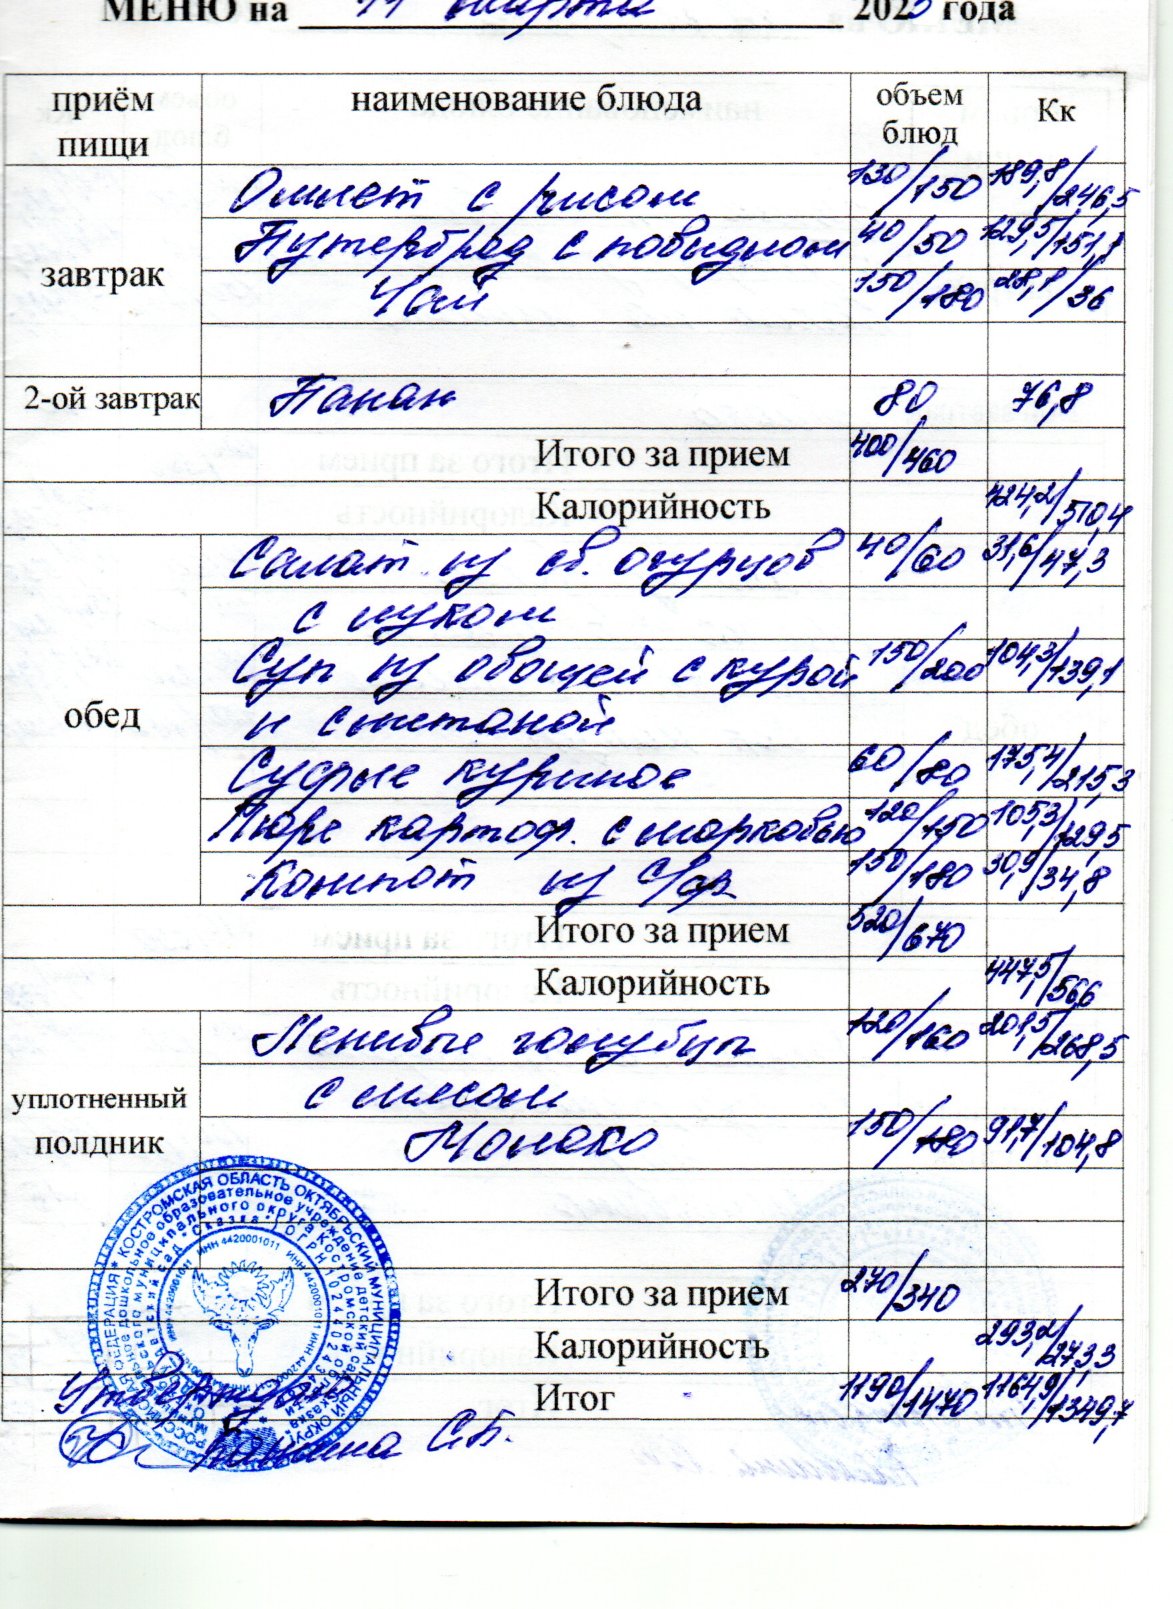 МЕНЮ на 11 марта 2025 года
приём пищи наименование блюда объем блюд Кк
завтрак
Омлет с рисом 130/150 189,8/246,5
Бутерброд с повидлом 40/50 129,5/151,1
Чай 150/180 28,1/36
2-ой завтрак Банан 80 76,8
Итого за прием 400/460
Калорийность 424,2/510,4
обед
Салат из св. огурцов 40/60 31,6/47,3
с луком
Суп из овощей с курой 150/200 104,3/139,1
и сметаной
Суфле куриное 60/80 175,4/215,3
Пюре картоф. с морковью 120/150 105,3/129,5
Компот из с/фр 150/180 30,9/34,8
Итого за прием 520/670
Калорийность 447,5/566
уплотненный полдник
Ленивые голубцы 120/160 201,5/268,5
с мясом
Молоко 150/180 91,7/104,8
Итого за прием 270/340
Калорийность 293,2/273,3
Итог 1190/1470 1164,9/1349,7
РОССИЙСКАЯ ФЕДЕРАЦИЯ * КОСТРОМСКАЯ ОБЛАСТЬ ОКТЯБРЬСКИЙ МУНИЦИПАЛЬНЫЙ ОКРУГ
дошкольное образовательное учреждение детский сад
муниципального округа Костромской
детский сад "Сказка"
ИНН 4420001011 ИНН 4420001011
Утверждаю
С.Б.